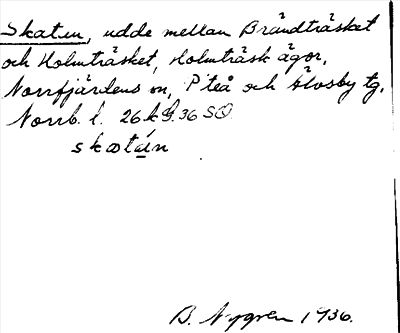 Skaten, udde mellan Brändträsket
och Holmträsket, Holmträsk ägor,
Norrfjärdens sn, Piteå och Älvsby tg,
Norrb. l. 26 k 36 SO
skatǽn
B. Nygren 1936.